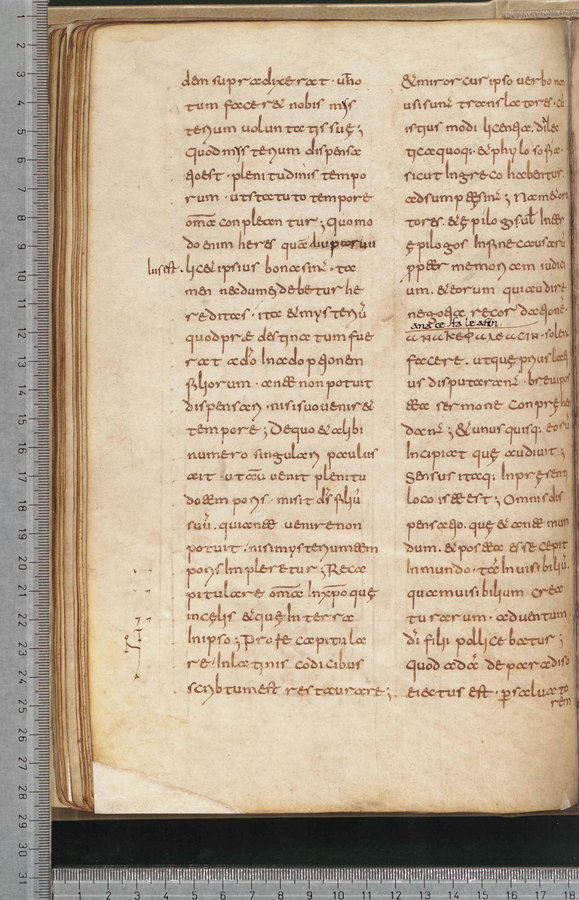 dem supradixerat · ut no
tum faceret nobis mys
terium voluntatis suę ;
quod mysterium dispensa
tio est · plenitudinis tempo
rum · ut statuto tempore
omīa conpleantur ; quomo
do enim heres quā diu paruu
lus est · licet ipsius bona sint · ta
men necdum ei debetur he
reditas · ita et mysteriū
quod prędestinatum fue
rat a dō In adoptionem
filiorum · ante non potuit
dispensari · nisi suo veniret
tempore ; De quo et alibi
numero singulari paulus
ait · venit plenitu
do temporis · misit ds filiū
suū · qui ante venire non
potuit · nisi mysterium tem
poris Impleretur ; Reca
pitulare omīa In xpō quę
in cęlis et quę In terra
In ipso ; Pro recapitula
re · In latinis codicibus
scribtum est restaurare ;
et miror cur ipso verbo non
usi sunt translatores · cū
istius modi licentia · diale
ticæ quoq; et phylosofiæ ·
sicut In greco habentur
adsumpti sint ; Nam et ora
tores · et epilogi solent Inter
epilogos In fine causarū
propter memoriam iudic
um · et eorum qui audire
negotia recordationē ·
anacefaleosin
solent
facere · ut quę prius lati
us disputarant · brevi pos
tea sermone conprehen
dant ; et unusquisq; eorū
Incipiat quę audivit
sensus itaq; In presenti
loco iste est ; Omnis dis
pensatio · quę et ante mun
dum · et postea esse cępit
In mundo · tam Invisibiliū
quam visibilium crea
turarum · adventum
dī filii pollicebatur ;
quod adā de paradiso
eiectus est · p salvato
rem